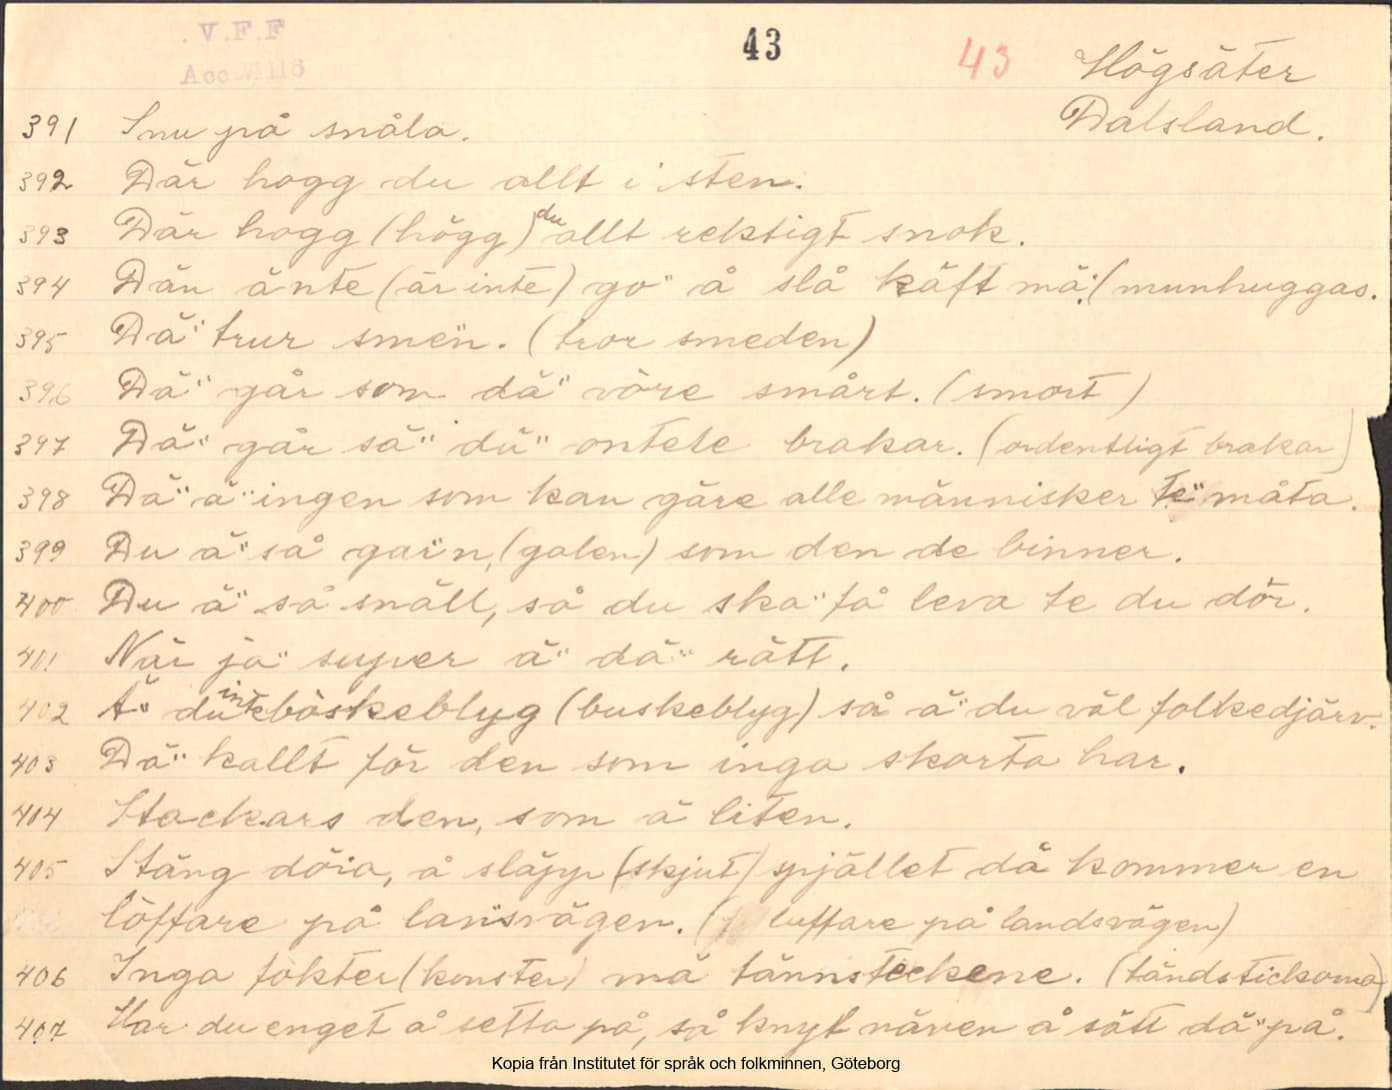 V.F.F
Acc
43
43
Högsäter
Dalsland.
391 Snu på snåla.
392 Där hogg du allt i sten.
393 Där hogg (högg) du allt rektigt snok.
394 Dän änte (är inte) go" å slå käft mä". (munhuggas.
395 Dä" trur sme"n. (tror smeden)
396 Dä" går som dä" vöre smårt. (smort)
397 Dä" går så" dä" ontele brakar. (ordentligt brakar)
398 Dä" ä" ingen som kan gäre alle människer te" måta.
399 Du ä" så ga"n, (galen) som den de binner.
400 Du ä" så snäll, så du ska" få leva te du dör.
401 När ja" super ä" dä" rätt.
402 Ä" du inte böskeblyg (buskeblyg) så ä" du väl folkedjärv.
403 Dä" kallt för den som inga skorta har.
404 Stackars den, som ä liten.
405 Stäng döra, å släpp (skjut) spjället då kommer en
löffare på lan"svägen. ( luffare på landsvägen)
406 Inga fökter (konster) mä tännsteckene. (tändstickorna)
407 Har du enget å setta på, så knyt näven å sätt dä" på.
Kopia från Institutet för språk och folkminnen, Göteborg